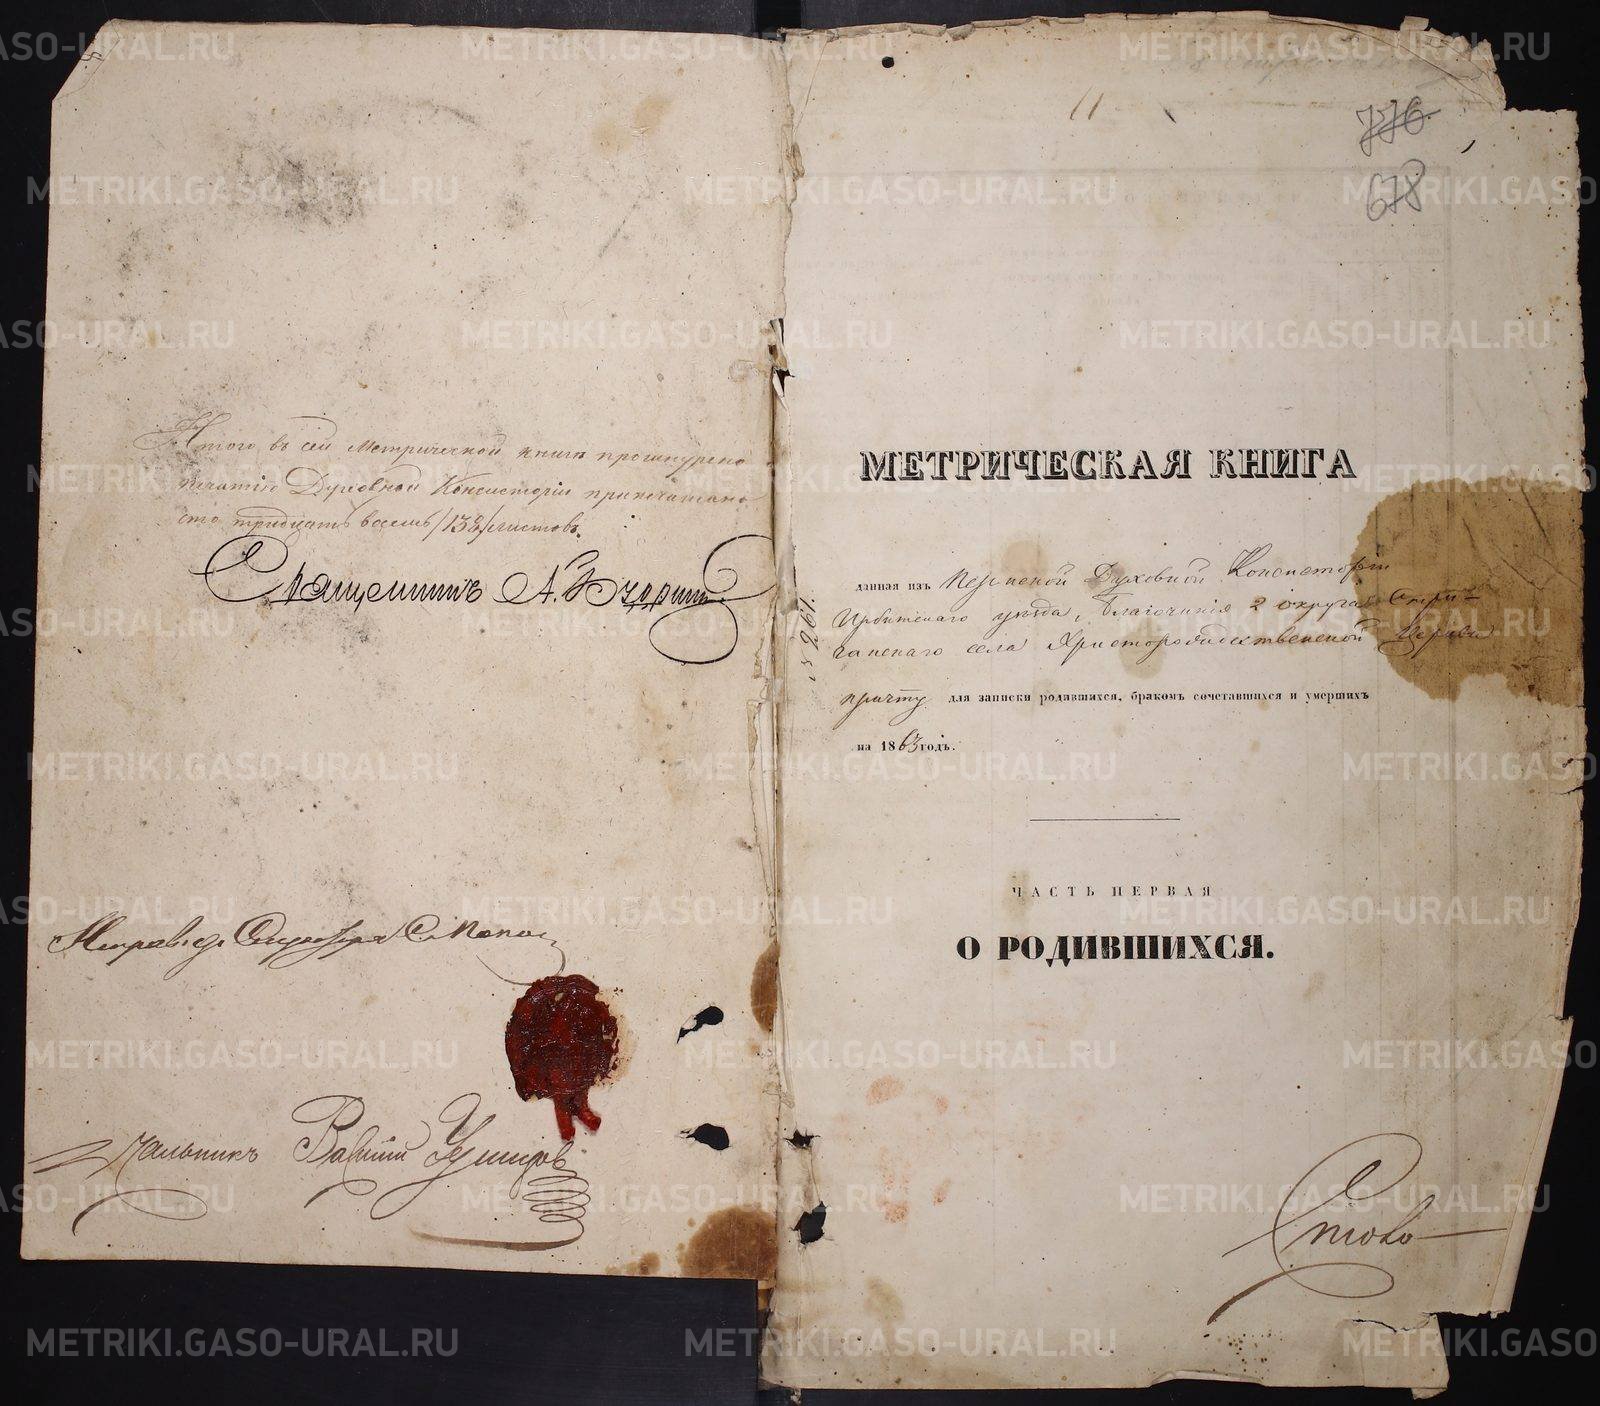 Итого въ сей Метрической книге прошнурено
печатию Духовной Консисторіи припечатано
сто тридцать восемь /138/ листовъ.
Священникъ А.
Исправ. д. Секретаря С. Попов
чальникъ
776
678
МЕТРИЧЕСКАЯ КНИГА
данная изъ Пермской Духовной Консисторіи
Ирбитскаго уѣзда, благочинія 2 округа Скри-
чанскаго села Христорождественской церкви
причту для записи родившихся, бракомъ сочетавшихся и умершихъ
на 1863 годъ.
ЧАСТЬ ПЕРВАЯ
О РОДИВШИХСЯ.
METRIKI.GASO-URAL.RU